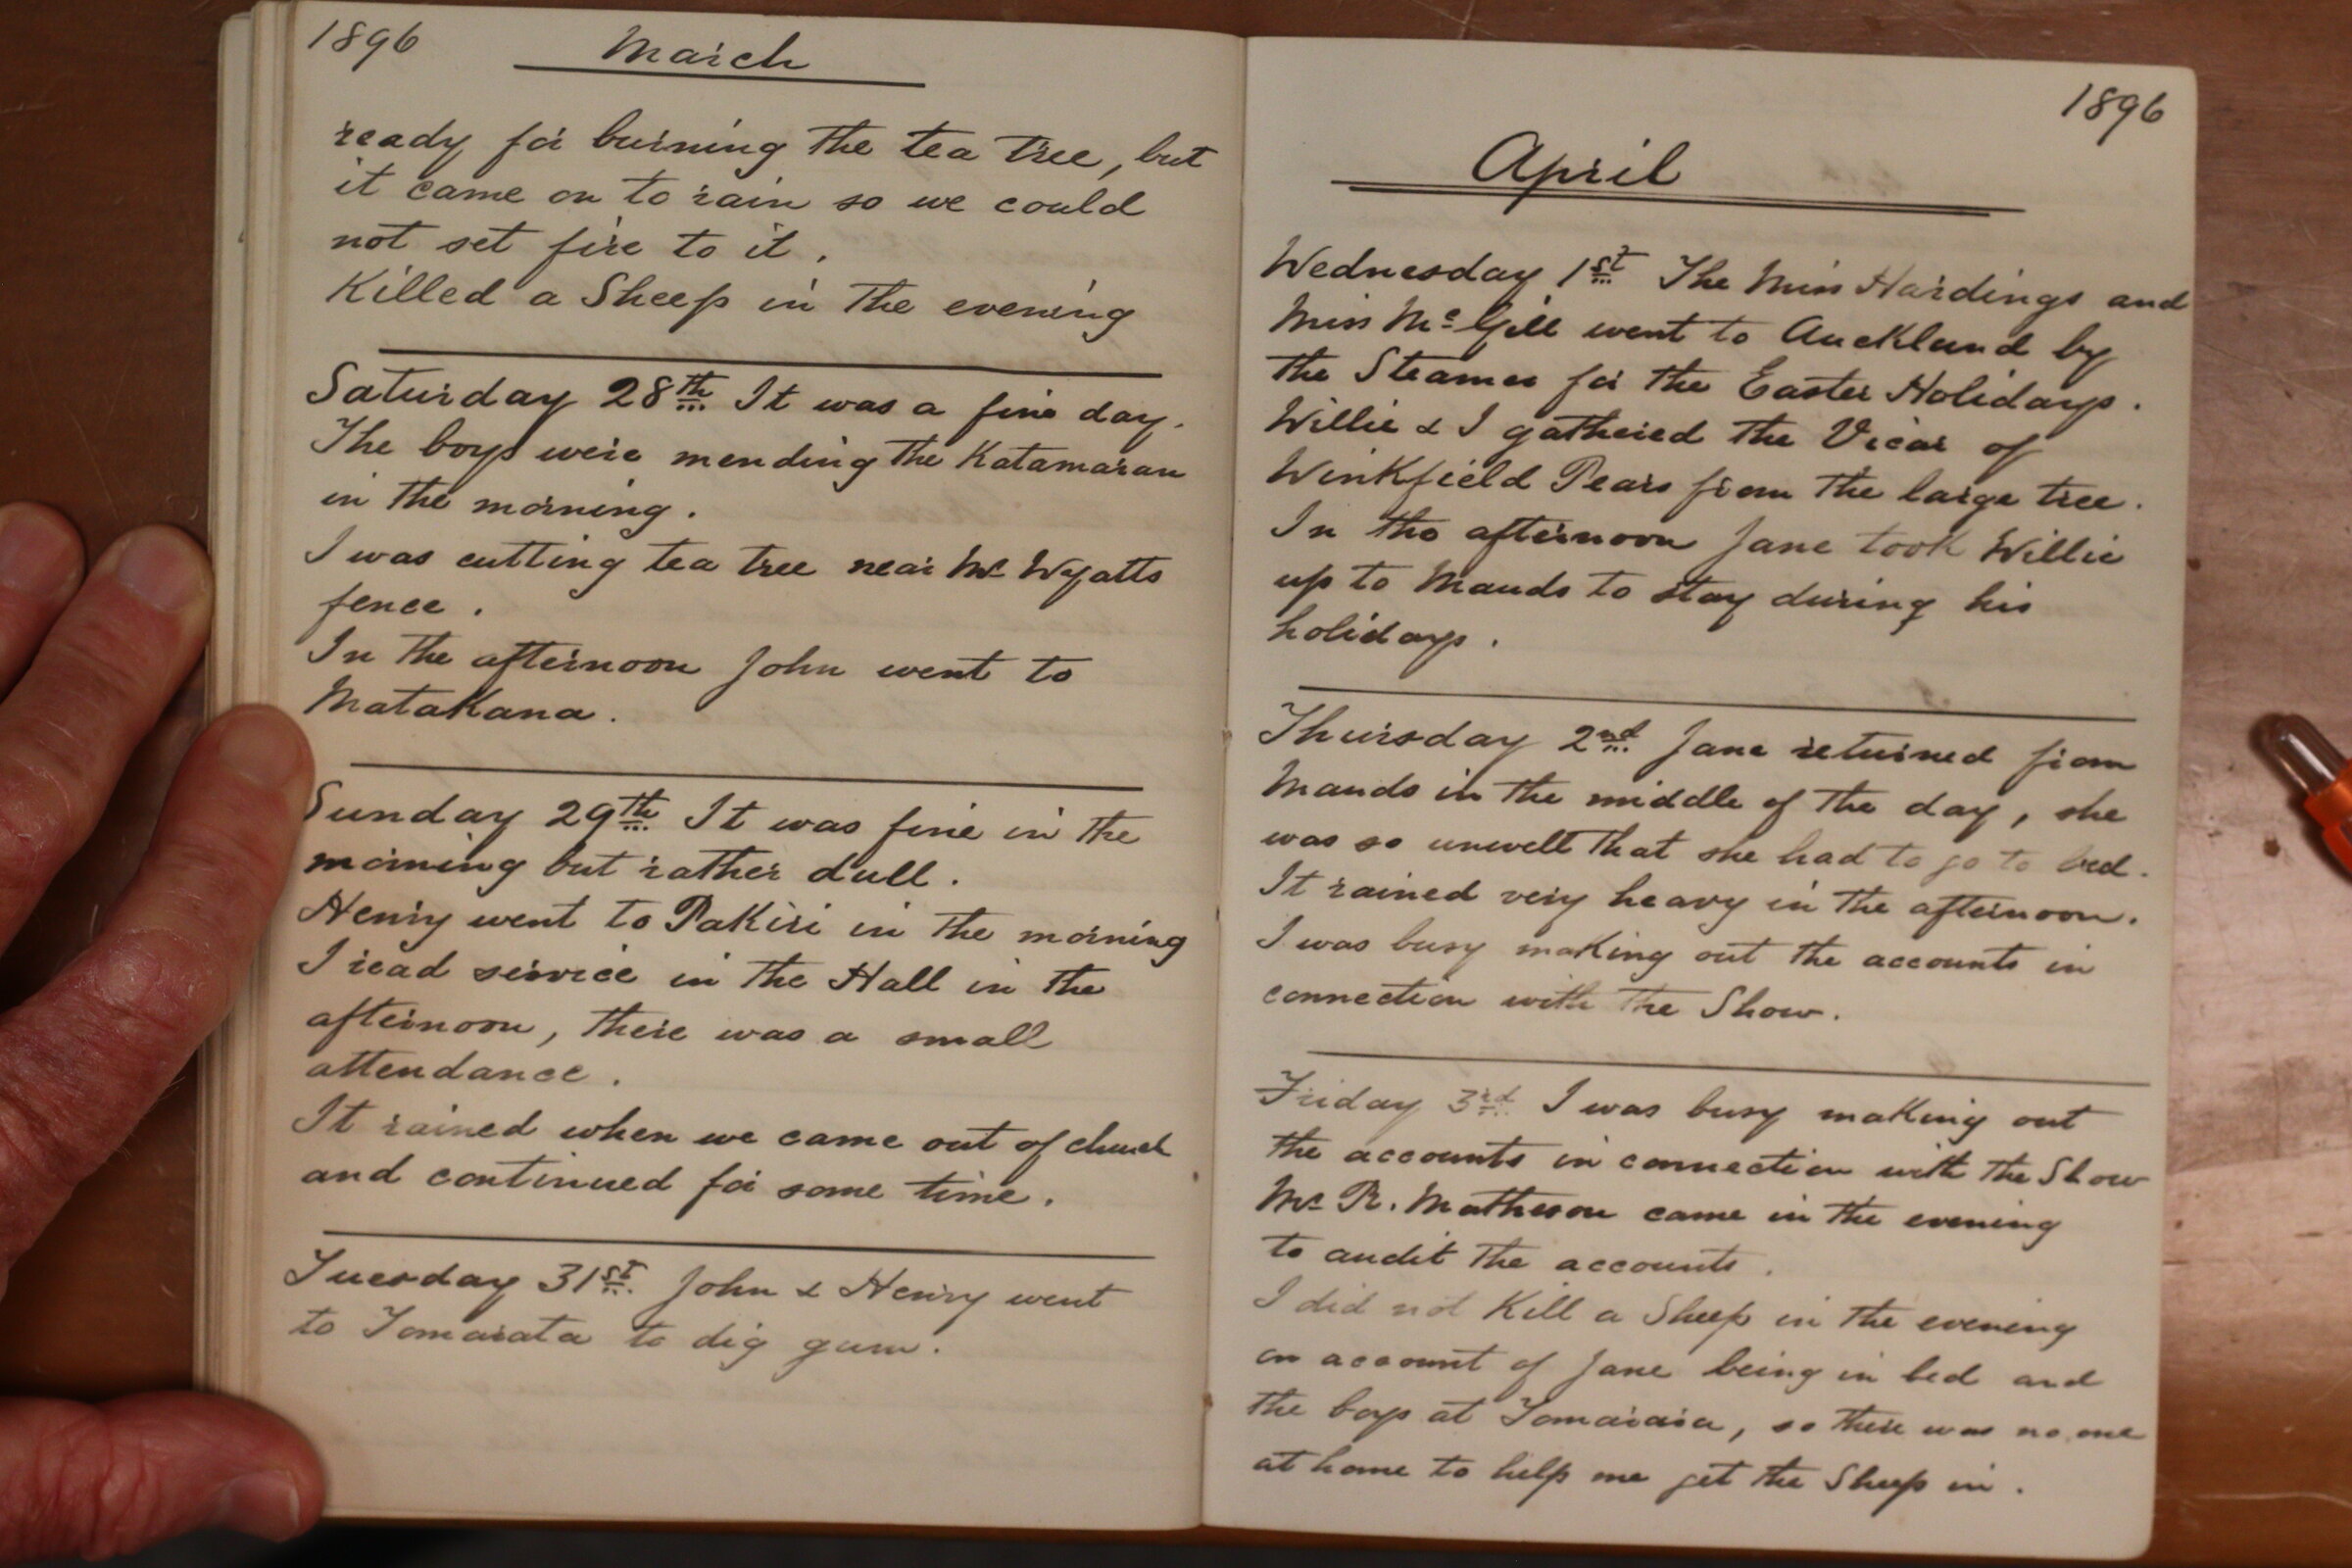 1896 March
ready for burning the tea tree, but
it came on to rain so we could
not set fire to it.
Killed a Sheep in the evening
Saturday 28th It was a fine day.
The boys were mending the Katamaran
in the morning.
I was cutting tea tree near Mr Wyatts
fence.
In the afternoon John went to
Matakana.
Sunday 29th It was fine in the
morning but rather dull.
Henry went to Pakiri in the morning
I read service in the Hall in the
afternoon, there was a small
attendance.
It rained when we came out of church
and continued for some time.
Tuesday 31st. John & Henry went
to Tomarata to dig gum.
1896
April
Wednesday 1st The Miss Hardings and
Miss McGill went to Auckland by
the Steamer for the Easter Holidays.
Willie & I gathered the Vicar of
Winkfield Pears from the large tree.
In the afternoon Jane took Willie
up to Mauds to stay during his
holidays.
Thursday 2nd Jane returned from
Mauds in the middle of the day, she
was so unwell that she had to go to bed.
It rained very heavy in the afternoon.
I was busy making out the accounts in
connection with the Show.
Friday 3rd I was busy making out
the accounts in connection with the Show
Mr R. Matheson came in the evening
to audit the accounts.
I did not Kill a Sheep in the evening
on account of Jane being in bed and
the boys at Tomarara, so there was no one
at home to help me get the Sheep in.